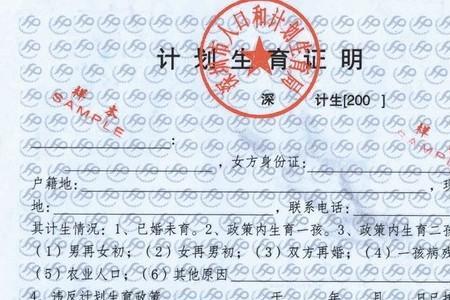 深圳市人口和计划生育局
计划生育证明
深 计生[200 ]
样本
SAMPLE
样
SAM
:
,女方身份证:
户籍地: ,现
地: ,联系电话:
其计生情况:1、已婚未育。2、政策内生育一孩。3、政策内生育二孩
(1)男再女初;(2)女再男初;(3)双方再婚;(4)一孩病残
(5)农业人口;(6)其他原因
4、违反计划生育政策 于 年 月 日已